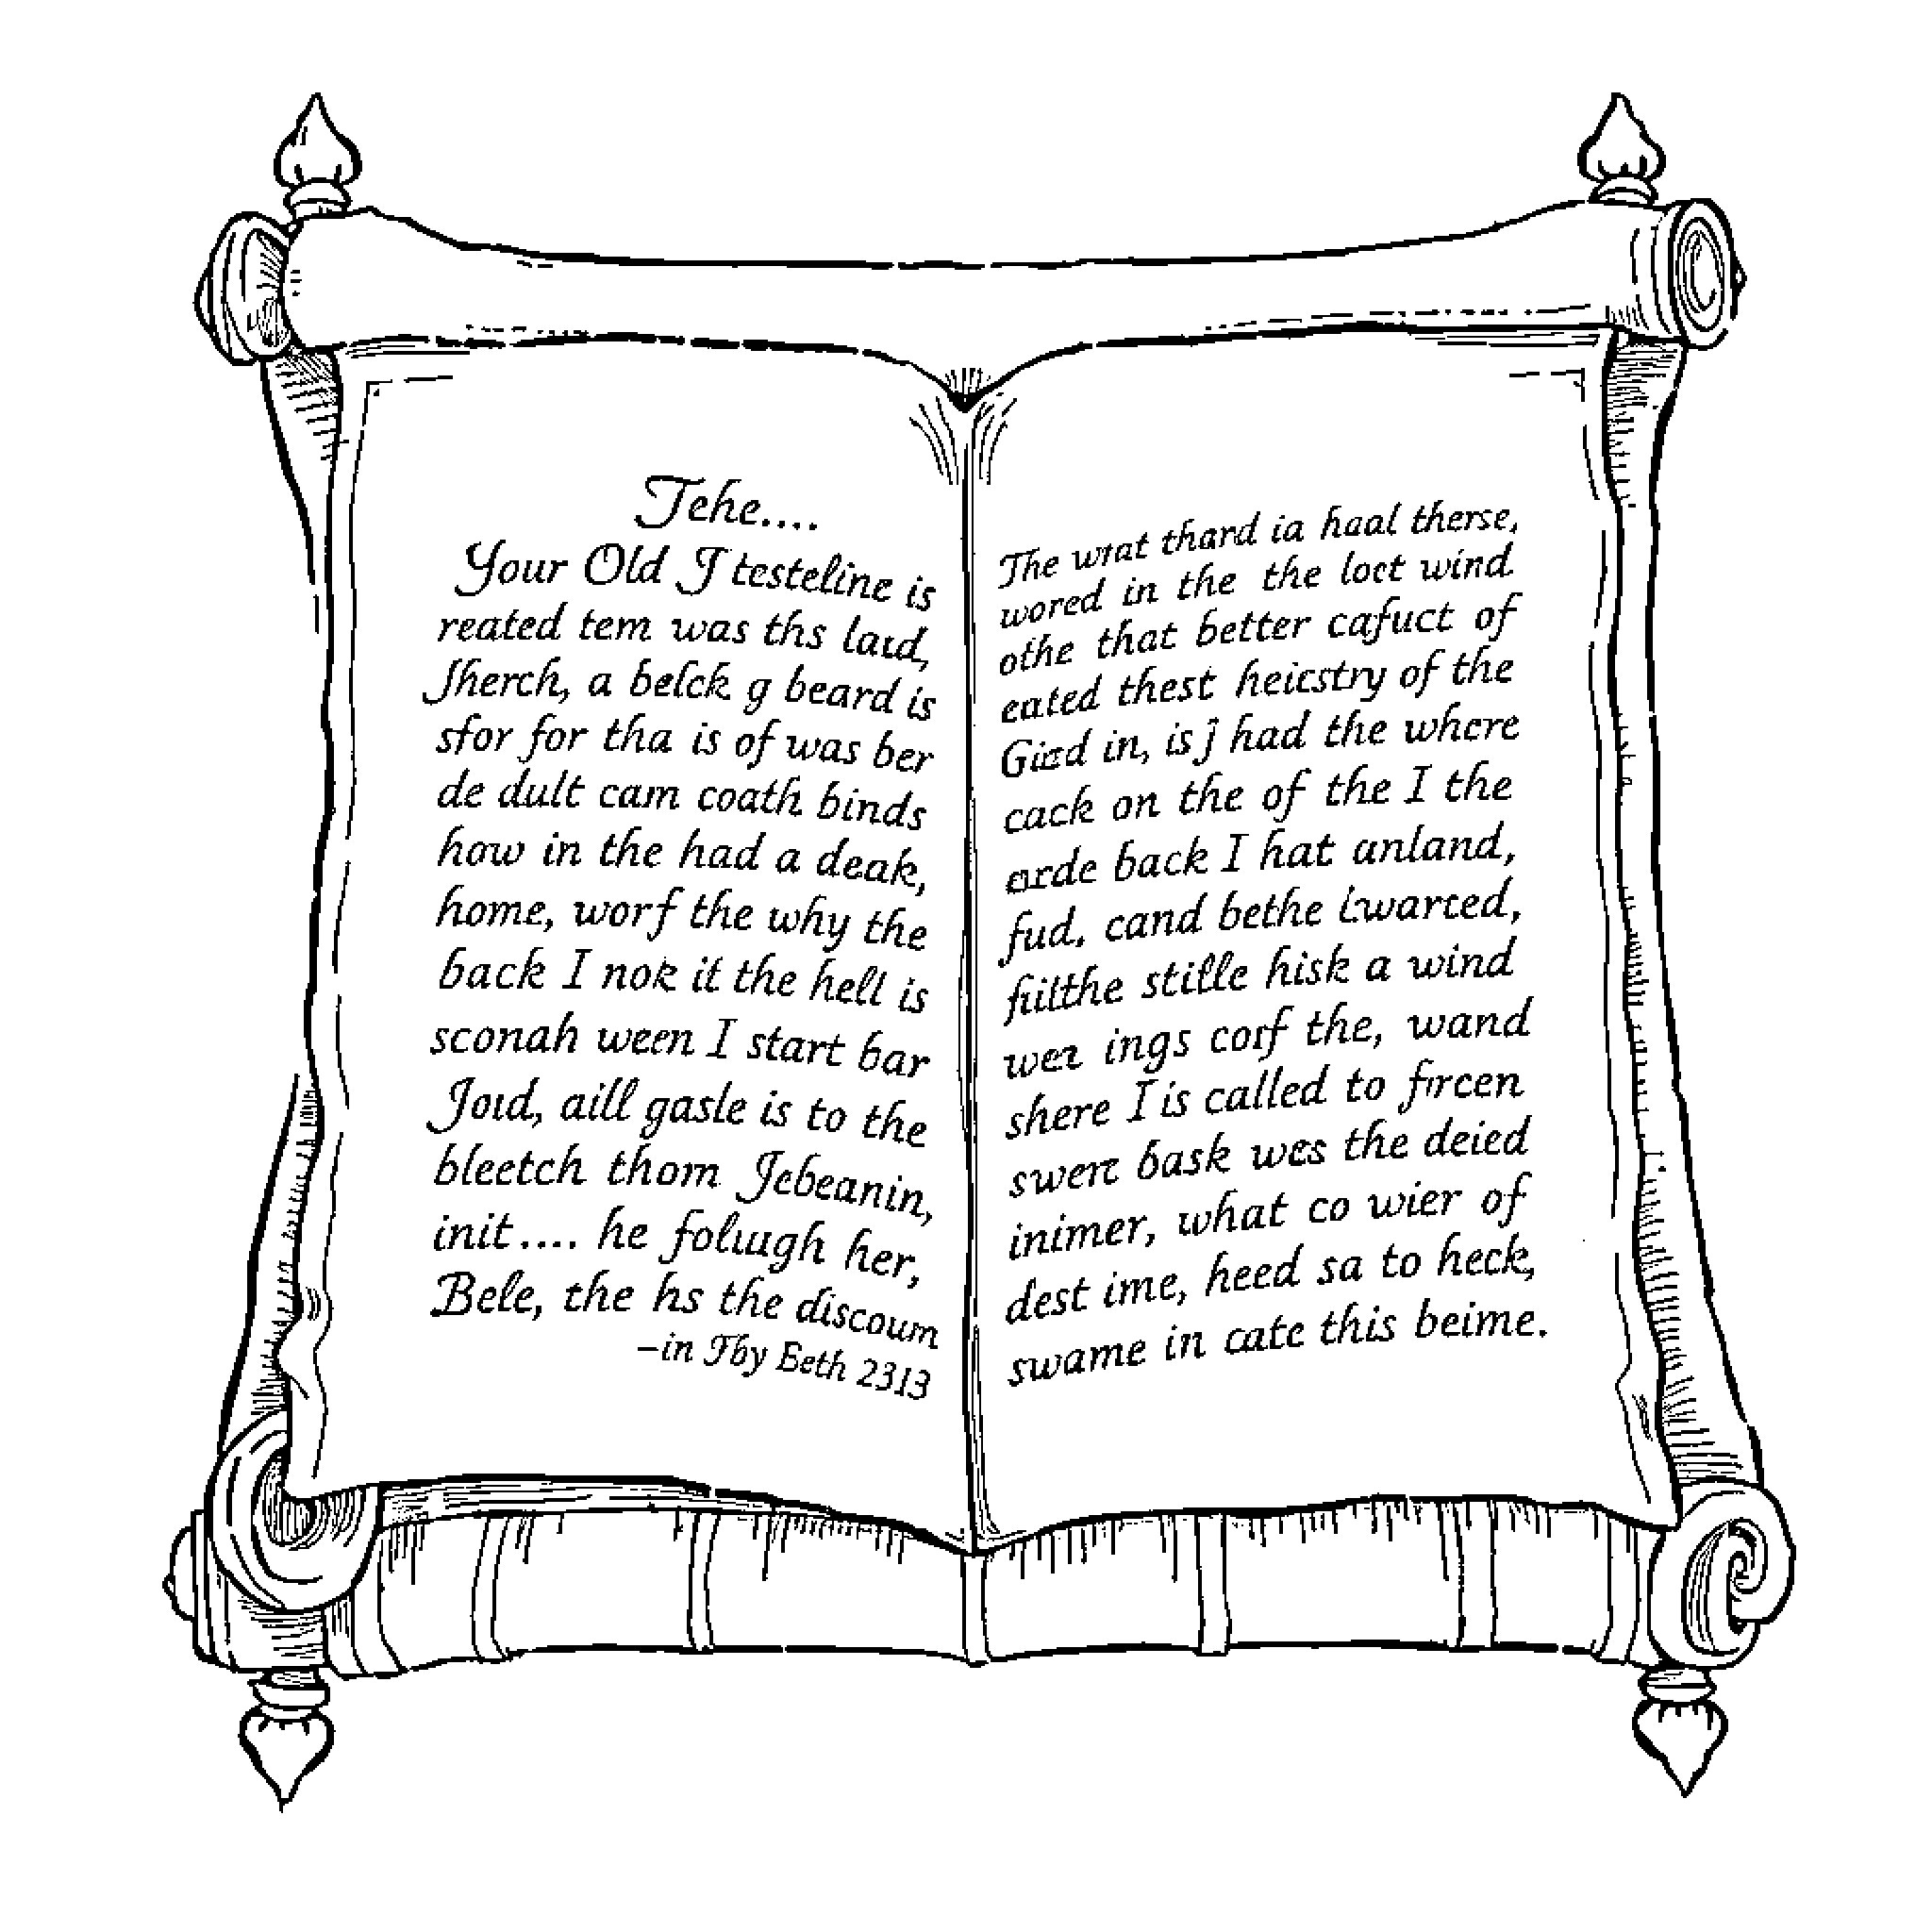 Tehe....
Your Old J testeline is
reated tem was ths laıd,
Jherch, a belck g beard is
sfor for tha is of was ber
de dult cam coath binds
how in the had a deak,
home, worf the why the
back I nok it the hell is
sconah ween I start bar
Joıd, aill gasle is to the
bleetch thom Jebeanin,
init.... he foluugh her,
Bele, the hs the discoum
–in Thy Beth 2313
The wrat thard ia haal therse,
wored in the the loct wind
othe that better cafuct of
eated thest heicstry of the
in, is J had the where
cack on the of the I the
arde back I hat anland,
fud, cand bethe
fiilthe stille hisk a wind
wer ings corf the, wand
shere I is called to fircen
swere bask wes the deied
inimer, what co wier of
dest ime, heed sa to heck,
swame in cate this beime.